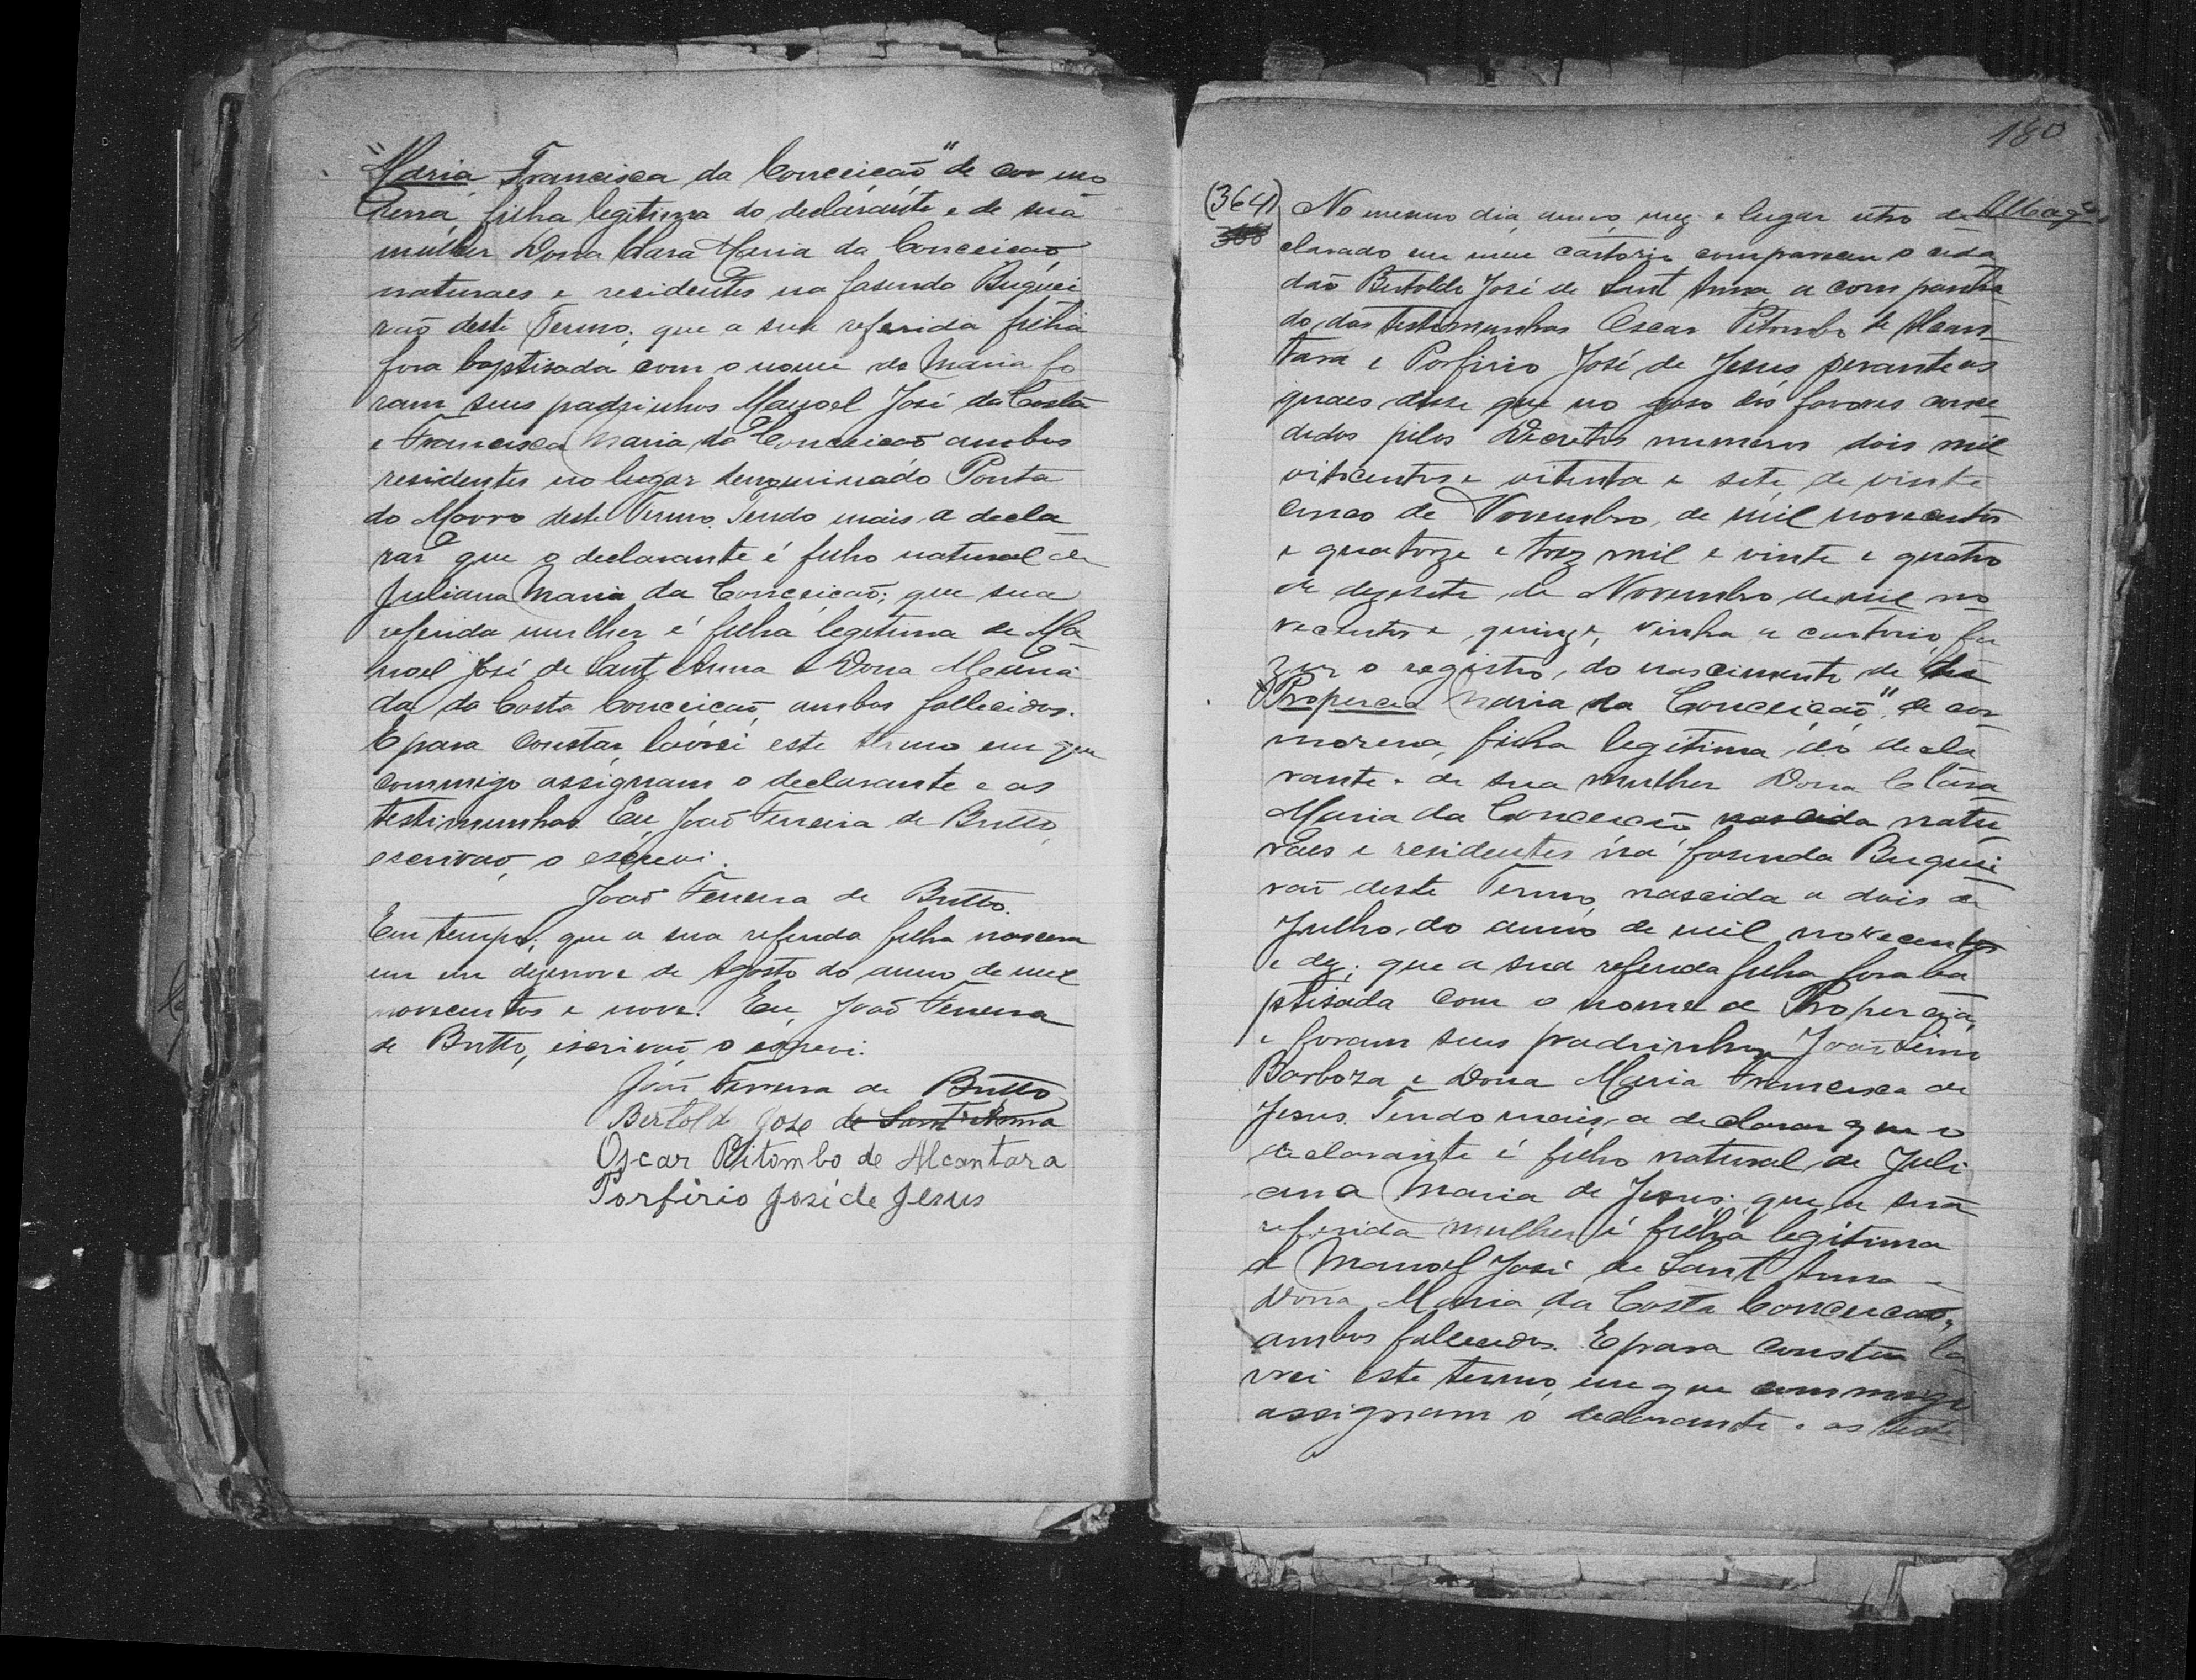 "Maria Francisca da Conceição" de cor mo
rena, filha legitima do declarante e de sua
mulher Dona Clara Maria da Conceição
naturaes e residentes na fasenda Buguei
rão deste Termo; que a sua referida filha
fora baptisada com o nome de Maria fo
ram seus padrinhos Manoel José da Costa
e Francisca Maria da Conceição ambos
residentes no lugar denominado Ponta
do Morro deste Termo. Tendo mais a decla
rar que o declarante é filho natural de
Juliana Maria da Conceição; que sua
referida mulher é filha legitima de Ma
noel José de Sant'Anna e Dona
da da Costa Conceição ambos fallecidos.
E para constar, lavrei este termo em que
commigo assignam o declarante e as
testimunhas. Eu, João Ferreira de Britto,
escrivão, o escrevi.
João Ferreira de Britto.
Em tempo; que a sua referida filha nasceu
em em dezenove de Agosto do anno de mil
novecentos e nove. Eu, João Ferreira
de Britto, escrivão, o escrevi.
João Ferreira de Britto
Bertoldo José de Sant'Anna
Oscar Pitombo de Alcantara
Porfirio José de Jesus
180
(364) No mesmo dia, anno, mez e lugar retro de
clarado em meu cartorio compareceu o cida
dão Bertoldo José de Sant'Anna, a companha
do das testimunhas Oscar Pitombo de Alcan
tara e Porfirio José de Jesus perante as
quaes disse que no goso dos favores conce
didos pelos Decretos numeros dois mil
oitocentos e oitenta e sete de vinte
cinco de Novembro, de mil novecentos
e quatorze e trez mil e vinte e quatro
de dezesete de Novembro de mil no
vecentos e quinze, vinha a cartorio fa
zer o registro, do nascimento de
"Propercia Maria da Conceição", de cor
morena, filha legitima do decla
rante e de sua mulher Dona Clara
Maria da Conceição nascida natu
raes e residentes na fasenda Buguei
rão deste Termo, nascida a dois de
Julho, do anno de mil novecentos
e dez; que a sua referida filha fora ba
ptisada com o nome de Propercia,
e foram seus padrinhos João
Barboza e Dona Maria Francisca de
Jesus. Tendo mais, a declarar que o
declarante é filho natural de Juli
ana Maria de Jesus; que a sua
referida mulher é filha legitima
de Manoel José de Sant'Anna e
Dona Maria da Costa Conceição,
ambos fallecidos. E para constar la
vrei este termo, em que commigo
assignam o declarante e as teste